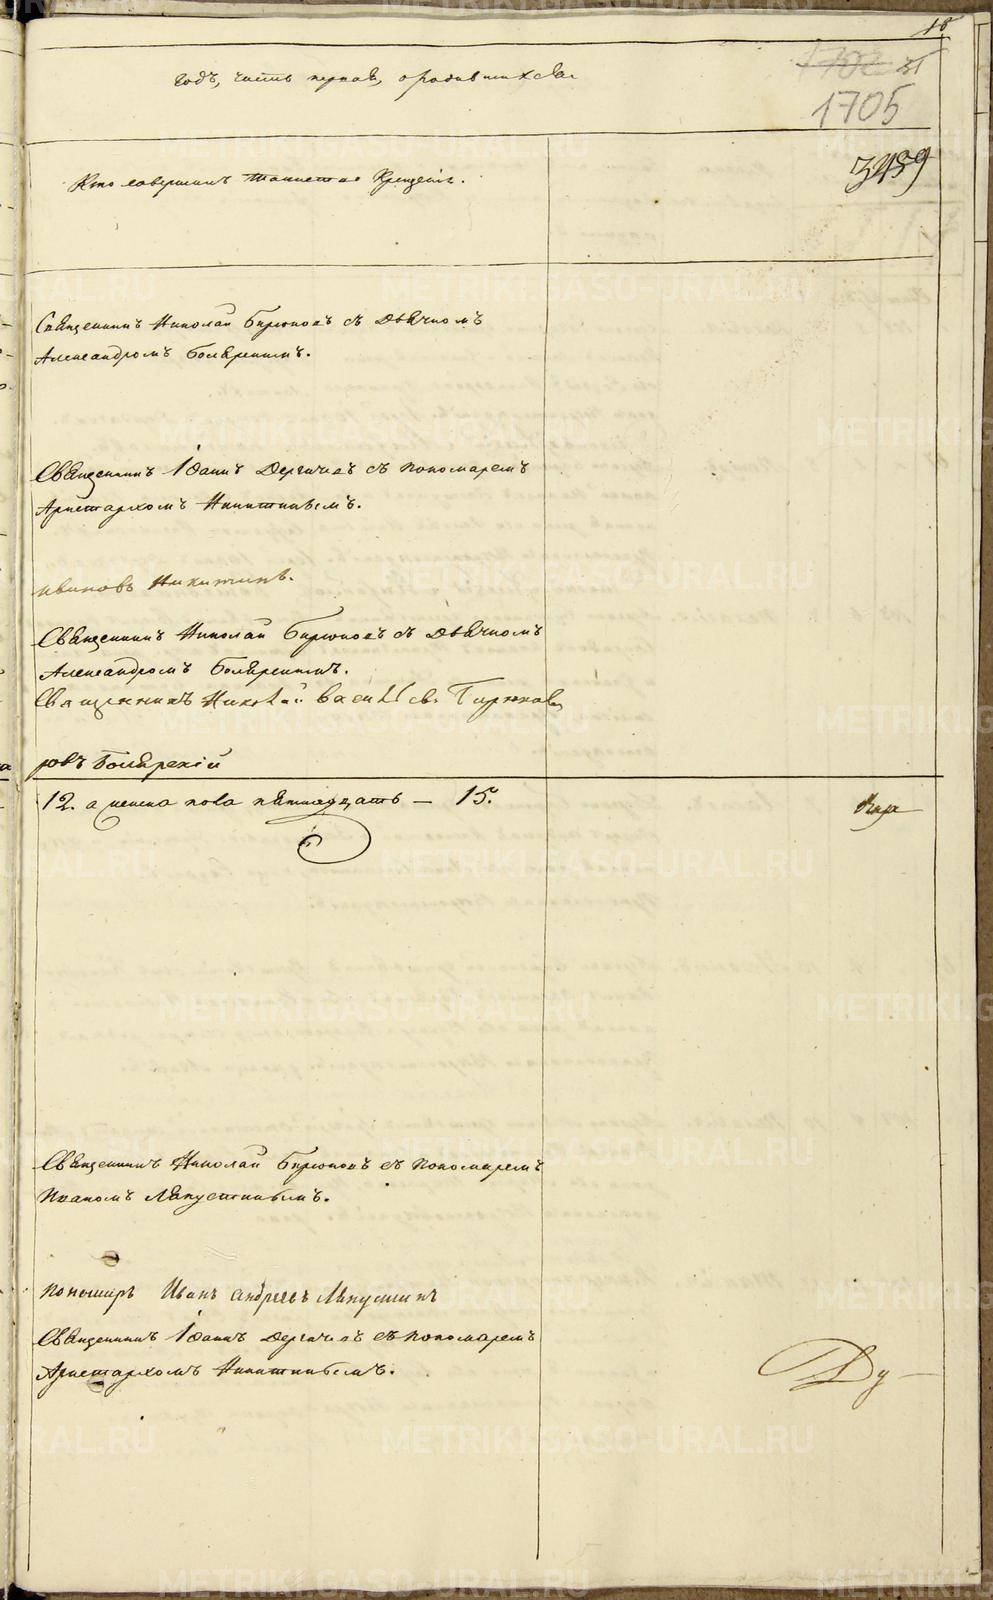 18
годъ, часть первая, о родившихся.
1702 31
1705
3439
Кто совершилъ таинство Крещенія.
Священникъ Николай Бирюковъ съ Дьячкомъ
Александромъ Боляренимъ.
Священникъ Іоаннъ Дергачевъ съ пономаремъ
Аристархомъ Никитинымъ.
Никитинъ.
Священникъ Николай Бирюковъ съ Дьячкомъ
Александромъ Боляренимъ.
Священникъ Николай Васильевъ Бирюковъ
ровъ Болярскій
12. а женска пола пятнадцать — 15.
Священникъ Николай Бирюковъ съ пономаремъ
Иваномъ Ляпустинымъ.
пономарь Иванъ Андреевъ Ляпустинъ
Священникъ Іоаннъ Дергачевъ съ пономаремъ
Аристархомъ Никитинымъ.
METRIKI.GASO-URAL.RU